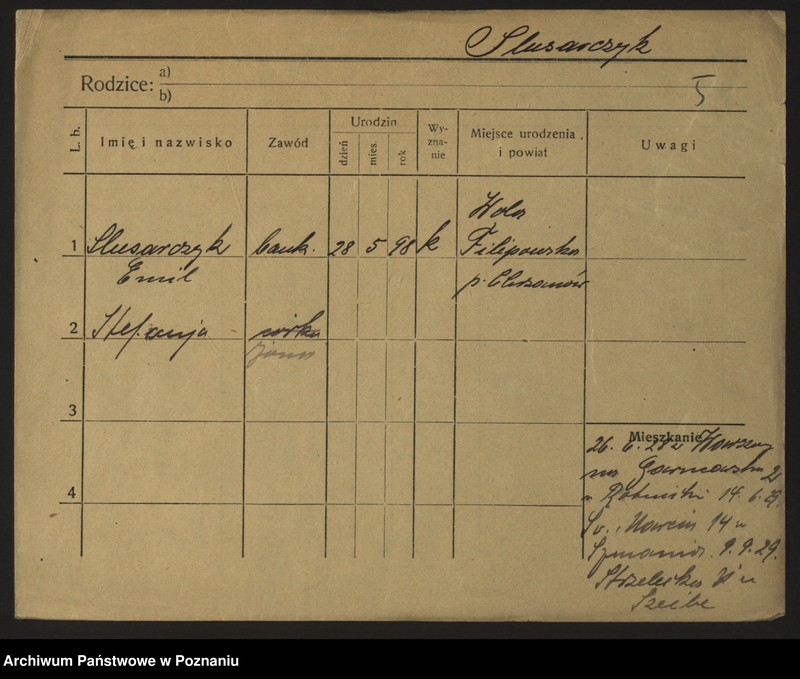 Slusarczyk
Rodzice: a)
b)
5
L. b. Imię i nazwisko Zawód Urodzin Wy-zna-nie Miejsce urodzenia i powiat Uwagi
dzień mies. rok
Wola
1 Slusarczyk bank. 28 5 98 k Filipowska
Emil p. Chrzanów
2 Stefanja córka
żona
3
Mieszkanie
26. 6. 28 z Warszawy
na Garncarska 2
u 14. 6. 29.
Sv. Marcin 14 u
9. 9. 29.
Strzelecka u
Szeibe
4
Archiwum Państwowe w Poznaniu